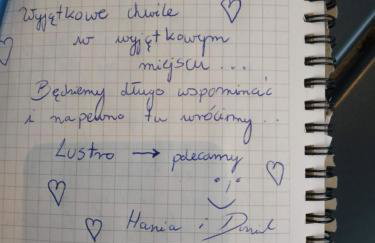 Wyjątkowe chwile
w wyjątkowym
miejscu ...
Będziemy długo wspominać
i napewno tu wrócimy ..
Lustro → polecamy
Hania i